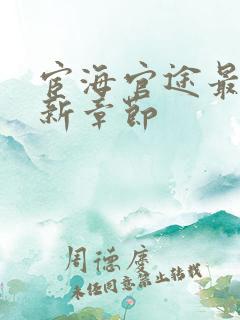 宦海官途最
新章节
周德庆
未经同意禁止转载